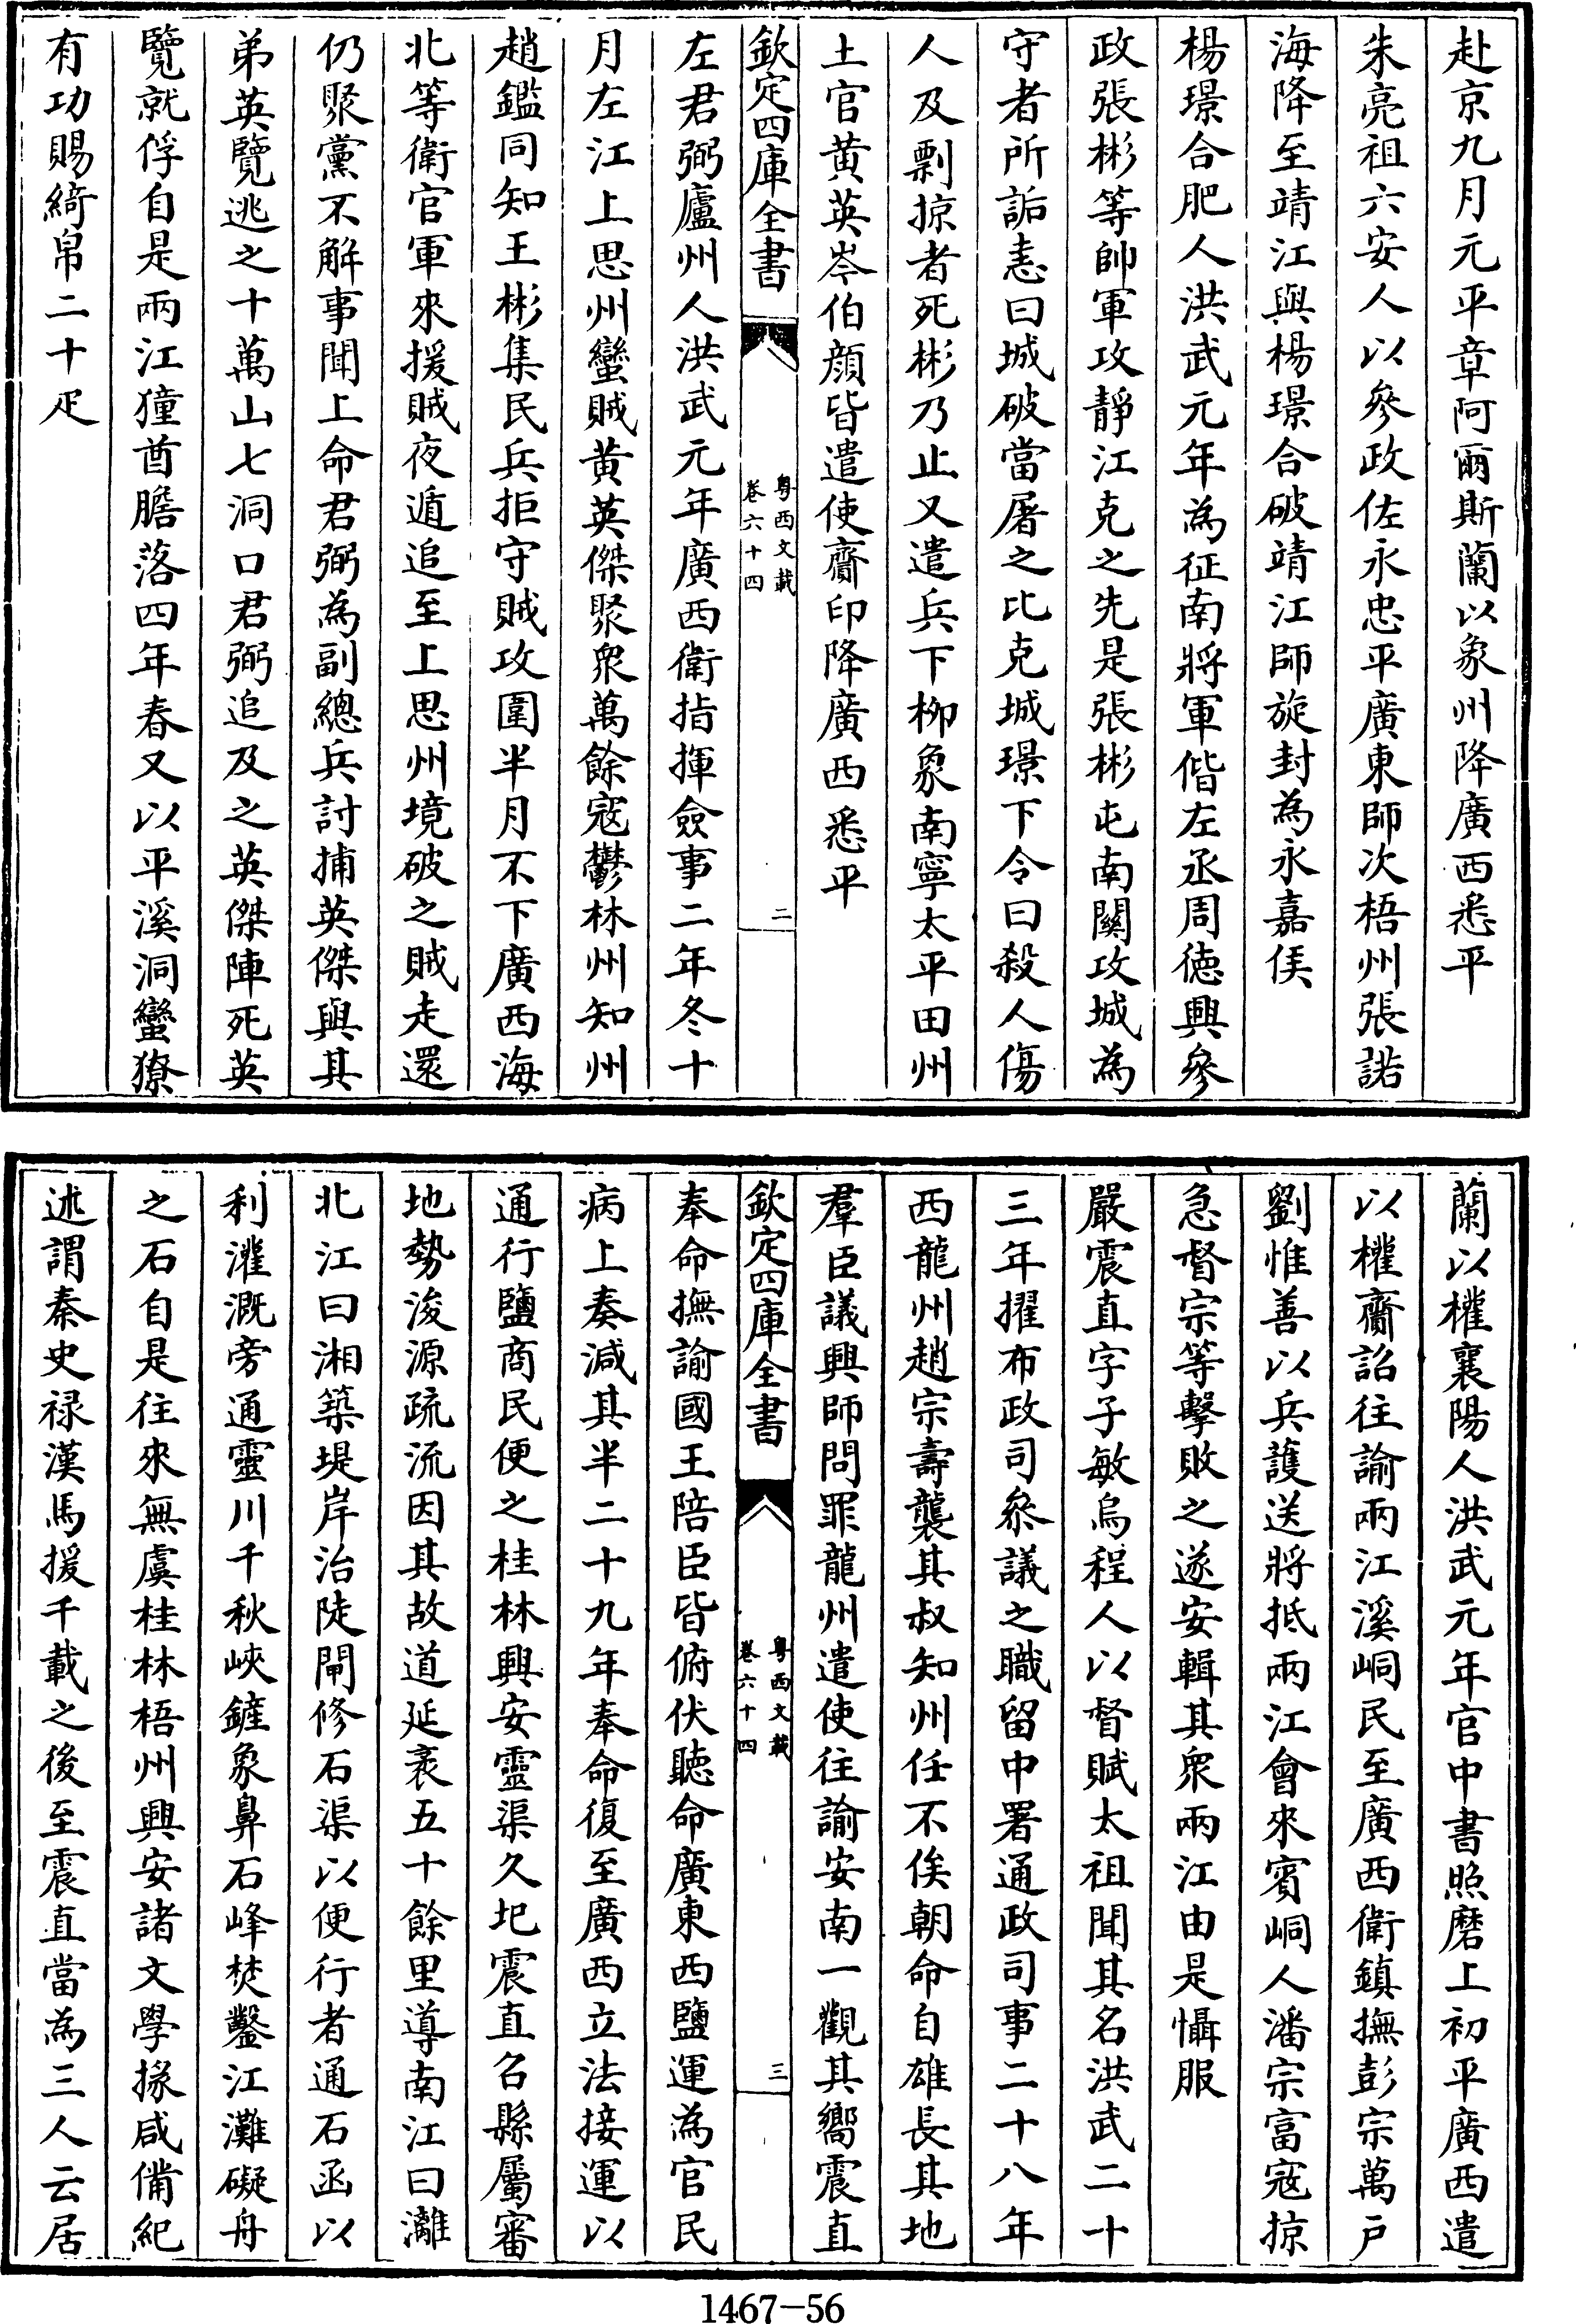 赴京九月元平章阿爾斯蘭以象州降廣西悉平
朱亮祖六安人以參政佐永忠平廣東師次梧州張諾
海降至靖江與楊璟合破靖江師旋封為永嘉侯
楊璟合肥人洪武元年為征南將軍偕左丞周德興參
政張彬等帥軍攻靜江克之先是張彬屯南關攻城為
守者所詬恚曰城破當屠之比克城璟下令曰殺人傷
人及剽掠者死彬乃止又遣兵下柳象南寧太平田州
土官黄英岑伯顔皆遣使齎印降廣西悉平
欽定四庫全書
粤西文載
卷六十四
二
左君弼廬州人洪武元年廣西衛指揮僉事二年冬十
月左江上思州蠻賊黄英傑聚衆萬餘寇鬱林州知州
趙鑑同知王彬集民兵拒守賊攻圍半月不下廣西海
北等衛官軍來援賊夜遁追至上思州境破之賊走還
仍聚黨不解事聞上命君弼為副總兵討捕英傑與其
弟英覽逃之十萬山七洞口君弼追及之英傑陣死英
覽就俘自是兩江獞酋膽落四年春又以平溪洞蠻獠
有功賜綺帛二十疋
蘭以權襄陽人洪武元年官中書照磨上初平廣西遣
以權齎詔往諭兩江溪峒民至廣西衛鎮撫彭宗萬戶
劉惟善以兵護送將抵兩江會來賓峒人潘宗富寇掠
急督宗等擊敗之遂安輯其衆兩江由是懾服
嚴震直字子敏烏程人以督賦太祖聞其名洪武二十
三年擢布政司叅議之職留中署通政司事二十八年
西龍州趙宗壽襲其叔知州任不俟朝命自雄長其地
羣臣議興師問罪龍州遣使往諭安南一觀其嚮震直
欽定四庫全書
粤西文載
卷六十四
三
奉命撫諭國王陪臣皆俯伏聽命廣東西鹽運為官民
病上奏減其半二十九年奉命復至廣西立法接運以
通行鹽商民便之桂林興安靈渠久圮震直名縣屬審
地勢浚源疏流因其故道延袤五十餘里導南江曰灕
北江曰湘築堤岸治陡閘修石渠以便行者通石函以
利灌溉旁通靈川千秋峽鏟象鼻石峰焚鑿江灘礙舟
之石自是往來無虞桂林梧州興安諸文學掾咸備紀
述謂秦史禄漢馬援千載之後至震直當為三人云居
1467-56